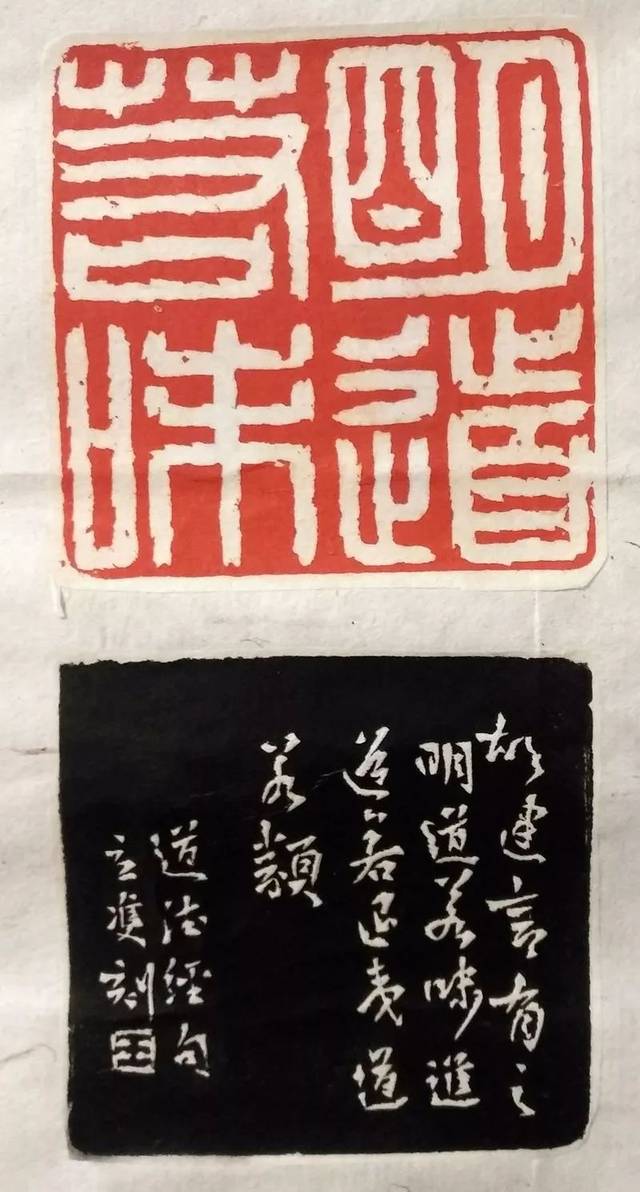 明道
若昧
故建言有之
明道若昧進
道若退夷道
若纇
道德經句
刻王